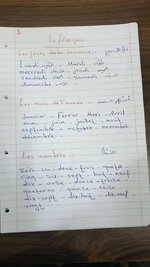 Le français
Les jours de la semaine :
Lundi - Mardi
mercredi - jeudi
vendredi - Samedi
dimanche
Les mois de l'année :
Janvier - Février - Mars - Avril
mai - juin - juillet - août
septembre - octobre - novembre
décembre
Les nombres :
Zéro - un - deux - trois - quatre
cinq - six - sept - huit - neuf
dix - onze - douze - treize
quatorze - quinze - seize
dix-sept - dix-huit - dix-neuf
vingt